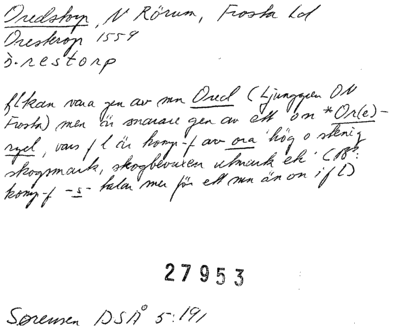 Oredstorp, N Rörum, Frosta hd
Orestrop 1559
ò·restorp
fl kan vara gen av mn Ored (Ljunggren ON
Frosta) men är snarare gen av ett on *Or(e)-
ryd, vars fl är komp-f av ora 'hög o stenig
skogsmark, skogbevuxen utmark etc'
komp-f -s- talar mer för ett mn än on i fl)
27953
Sørensen DSÅ 5:191